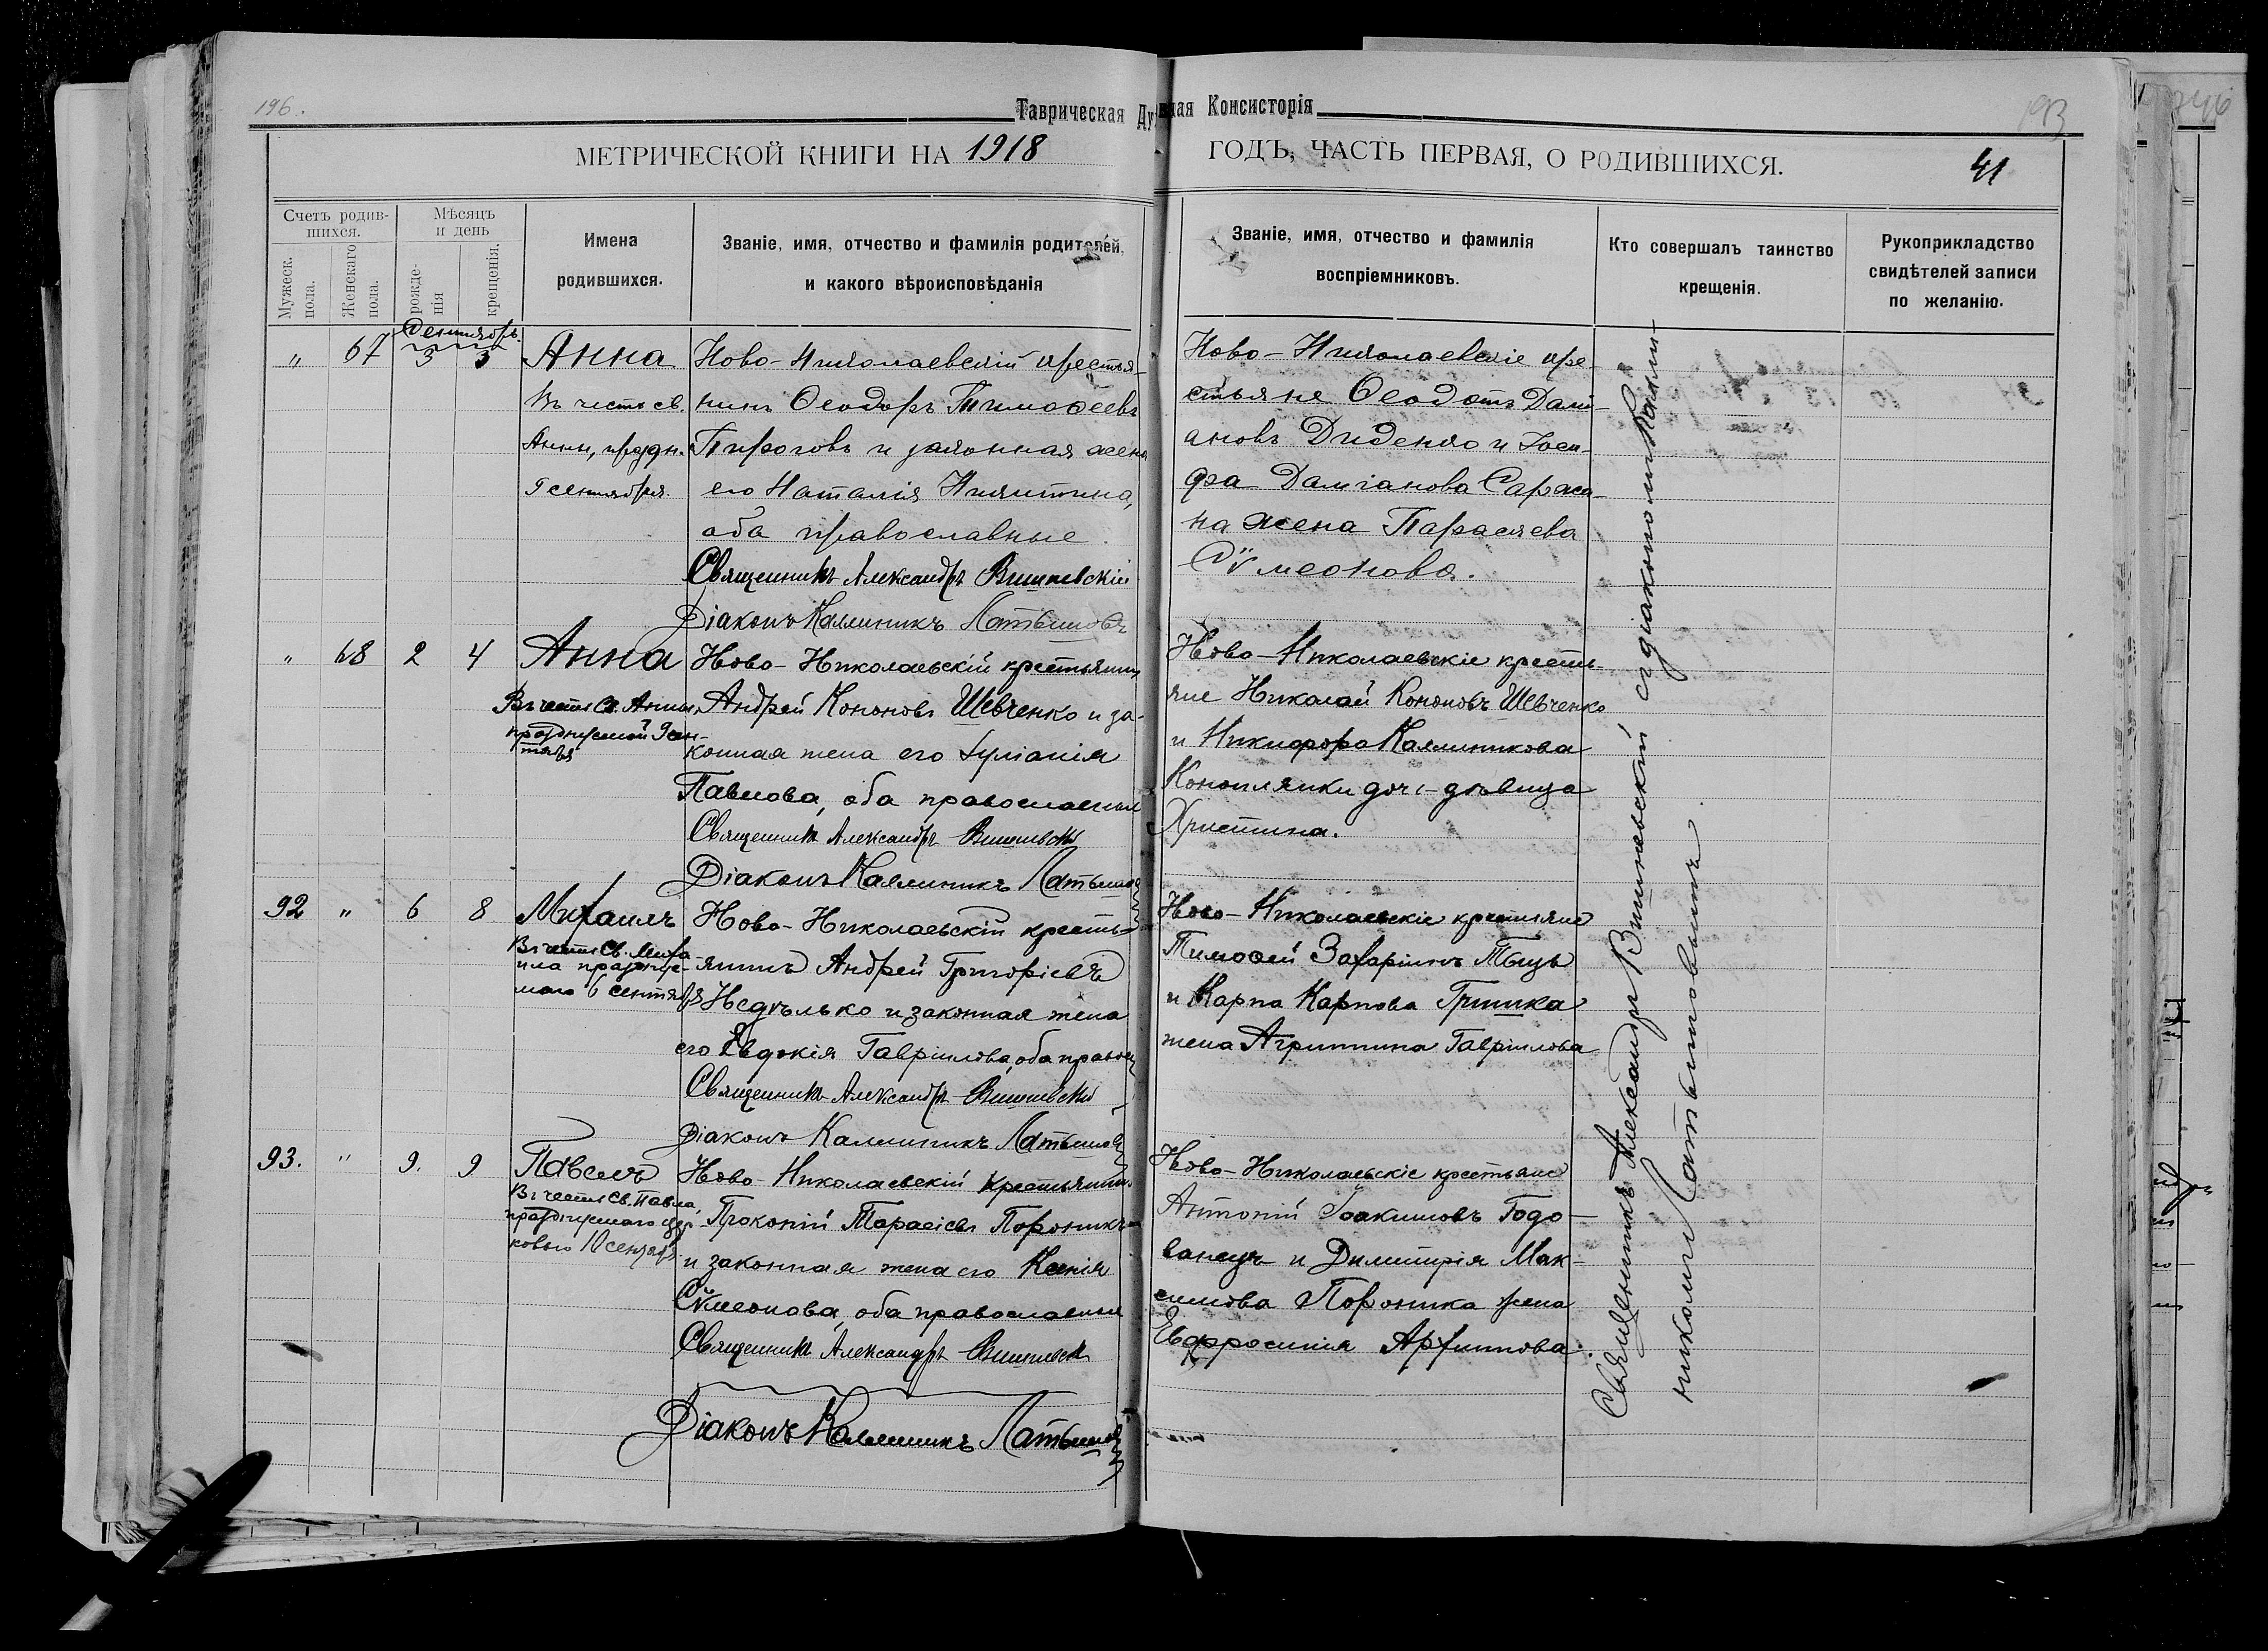 196.
Таврическая Духовная Консисторія
193
МЕТРИЧЕСКОЙ КНИГИ НА 1918 ГОДЪ, ЧАСТЬ ПЕРВАЯ, О РОДИВШИХСЯ.
41
Счетъ родив-
шихся.
Мужеск.
пола.
Женскаго
пола.
Мѣсяцъ
и день
рожде-
нія
крещенія.
Имена
родившихся.
Званіе, имя, отчество и фамилія родителей,
и какого вѣроисповѣданія
Званіе, имя, отчество и фамилія
воспріемниковъ.
Кто совершалъ таинство
крещенія.
Рукоприкладство
свидѣтелей записи
по желанію.
Сентябрь.
" 67 3 3
Анна
Въ честь св.
Анны, праздн.
9 сентября
Ново-Николаевскій крестья-
нинъ Ѳеодоръ Тимоѳеевъ
Пироговъ и законная жена
его Наталія Никитина,
оба православные
Священникъ Александръ Вишневскій
Діаконъ Каллиникъ Латышовъ
Ново-Николаевскіе кре-
стьяне Ѳеодотъ Дамі-
ановъ Диденко и Іоси-
фа Даміанова
на жена Параскева
Сѵмеонова.
" 68 2 4
Анна
Въ честь Св. Анны,
празднуемой 9 сен-
тября
Ново-Николаевскій крестьянинъ
Андрей Кононовъ Шевченко и за-
конная жена его Іуліанія
Павлова, оба православные
Священникъ Александръ Вишневскій
Діаконъ Каллиникъ Латышовъ
Ново-Николаевскіе кресть-
яне Николай Кононовъ Шевченко
и Никифора Каллиникова
Коноплянки дочь-дѣвица
Христина.
92 " 6 8
Михаилъ
Въ честь Св. Миха-
ила праздну-
маго 6 сентября
Ново-Николаевскій кресть-
янинъ Андрей Григоріевъ
Недѣлько и законная жена
его Евдокія Гавріилова, оба правосл.
Священникъ Александръ Вишневскій
Діаконъ Каллиникъ Латышовъ
Ново-Николаевскіе крестьяне
Тимоѳей Захаріинъ
и Карпа Карпова Гришка
жена Агриппина Гавріилова
93. " 9. 9
Павелъ
Въ честь Св. Павла,
празднуемаго цер-
ковью 10 сентября
Ново-Николаевскій крестьянинъ
Прокопій Тарасіевъ Пороникъ
и законная жена его Ксенія
Сѵмеонова, оба православные
Священникъ Александръ Вишневск
Діаконъ Каллиникъ Латышовъ
Ново-Николаевскіе крестьяне
Антоній Іоакимовъ Годо-
ванецъ и Димитрія Мак-
симова Пороника жена
Евфросинія Архиппова.
Священникъ Александръ Вишневскій съ діакономъ Калли-
никомъ Латышовымъ